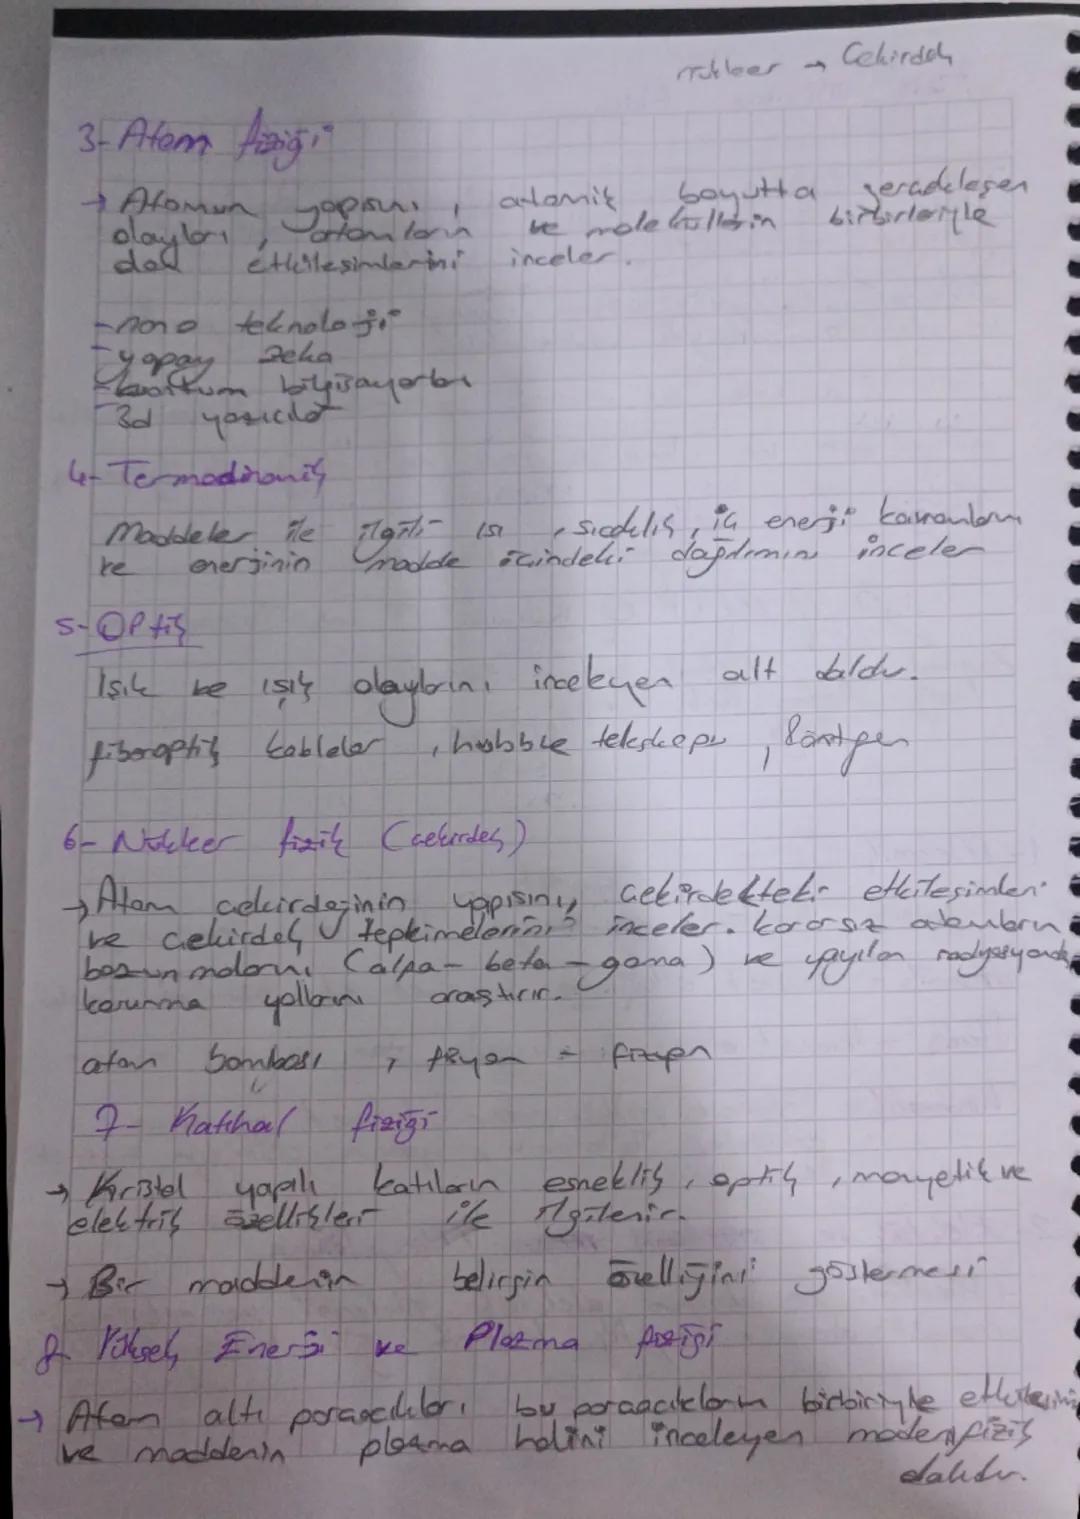 nükleer → Çekirdek
3- Atom fiziği
→ Atomun yapısını, atomik boyutta gerçekleşen
olayları, atomların ve moleküllerin birbirleriyle
olan etkileşimlerini inceler.
- nano teknoloji
- yapay zeka
- kuantum bilgisayarları
- 3d yazıcılar
4- Termodinamik
Maddeler ile ilgili ısı, sıcaklık, iç enerji kavramlarını
ve enerjinin madde içindeki dağılımını inceler
5- OPtik
Işık ve ışık olaylarını inceleyen alt daldır.
fiberoptik kablolar, hubble teleskopu, Röntgen
6- Nükleer fizik (çekirdek)
→ Atom çekirdeğinin yapısını, çekirdekteki etkileşimleri
ve çekirdek tepkimelerini inceler. kararsız atomların
bozunmalarını (alfa - beta - gama) ve yayılan radyasyondan
korunma yollarını araştırır.
atom bombası, füzyon - fizyon
7- Katıhal fiziği
→ Kristal yapılı katıların esneklik, optik, manyetik ve
elektrik özellikleri ile ilgilenir.
→ Bir maddenin belirgin özelliğini göstermesi
8- Yüksek Enerji ve Plazma fiziği
→ Atom altı parçacıkları bu parçacıkların birbiriyle etkileşimini
ve maddenin plazma halini inceleyen modern fizik
dalıdır.